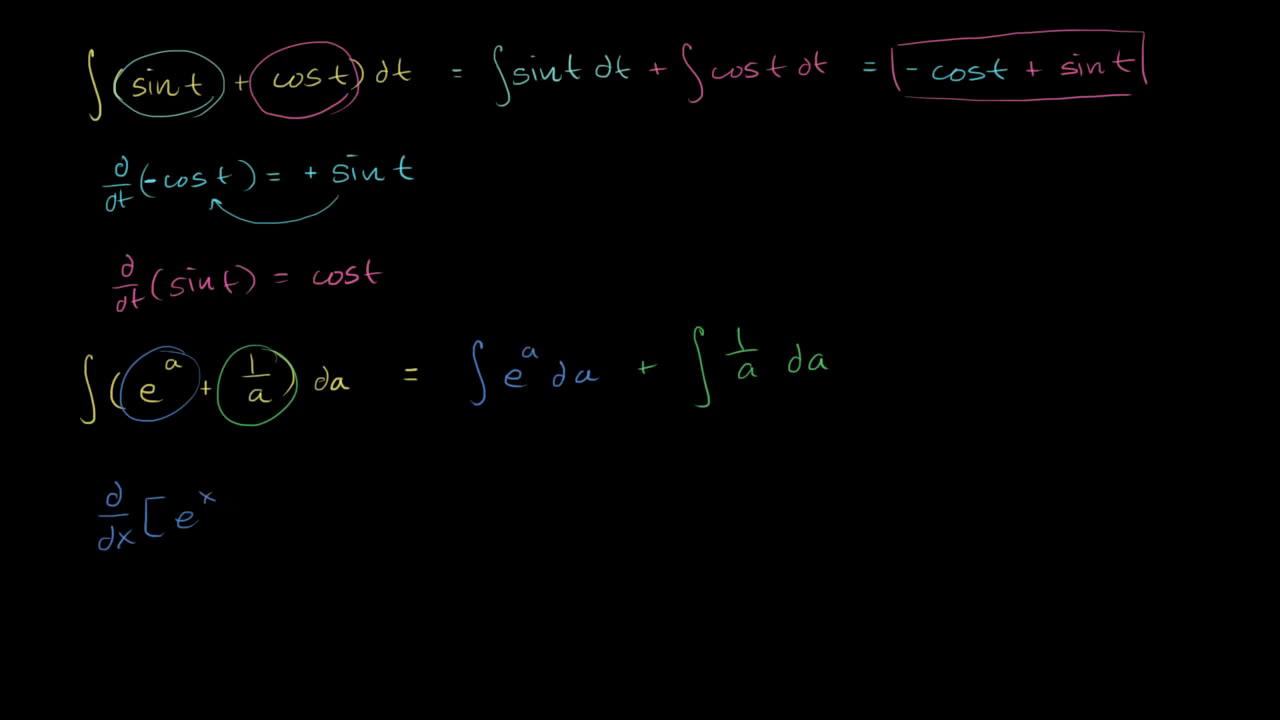 ∫(sin t + cos t) dt = ∫sin t dt + ∫cos t dt = - cos t + sin t
d/dt (-cos t) = + sin t
d/dt (sin t) = cos t
∫(e^a + 1/a) da = ∫e^a da + ∫1/a da
d/dx [e^x